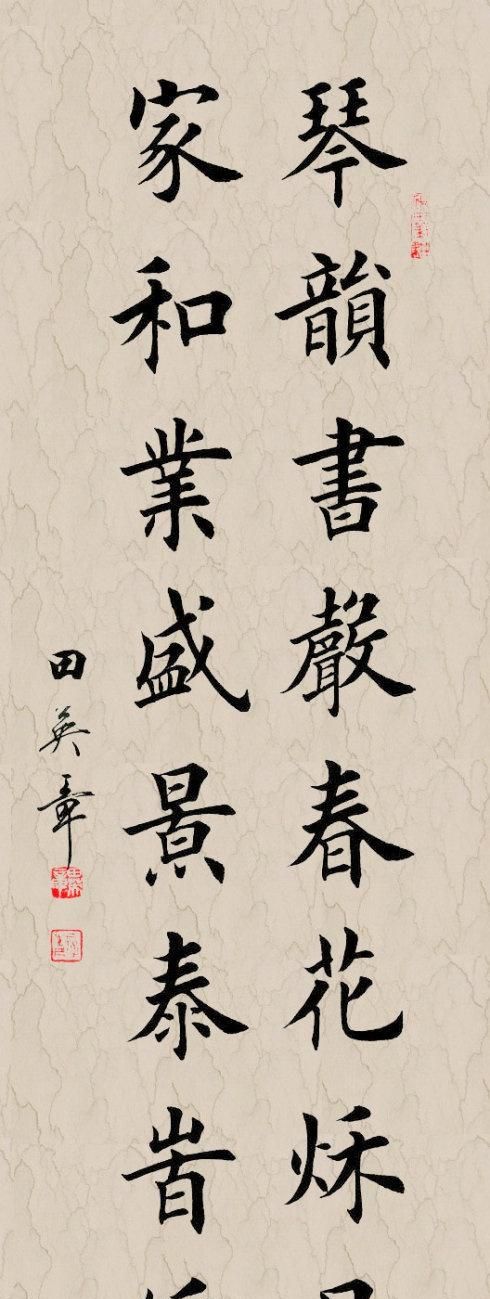 琴韻書聲春花秌
家和業盛景泰旹
田英章